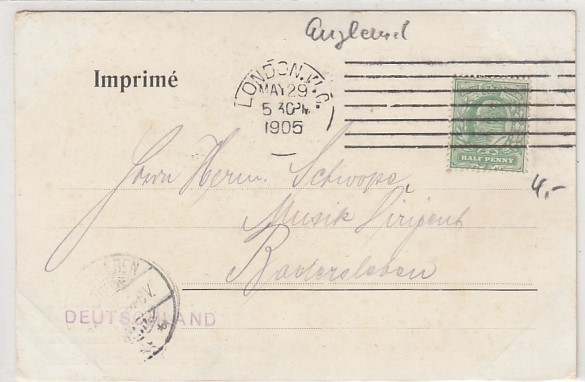 England
Imprimé
LONDON. W.C.
MAY 29
5 30 PM
1905
HALF PENNY
4.-
Herrn Herm. Schwope
Musik Dirigent
Badersleben
DEUTSCHLAND